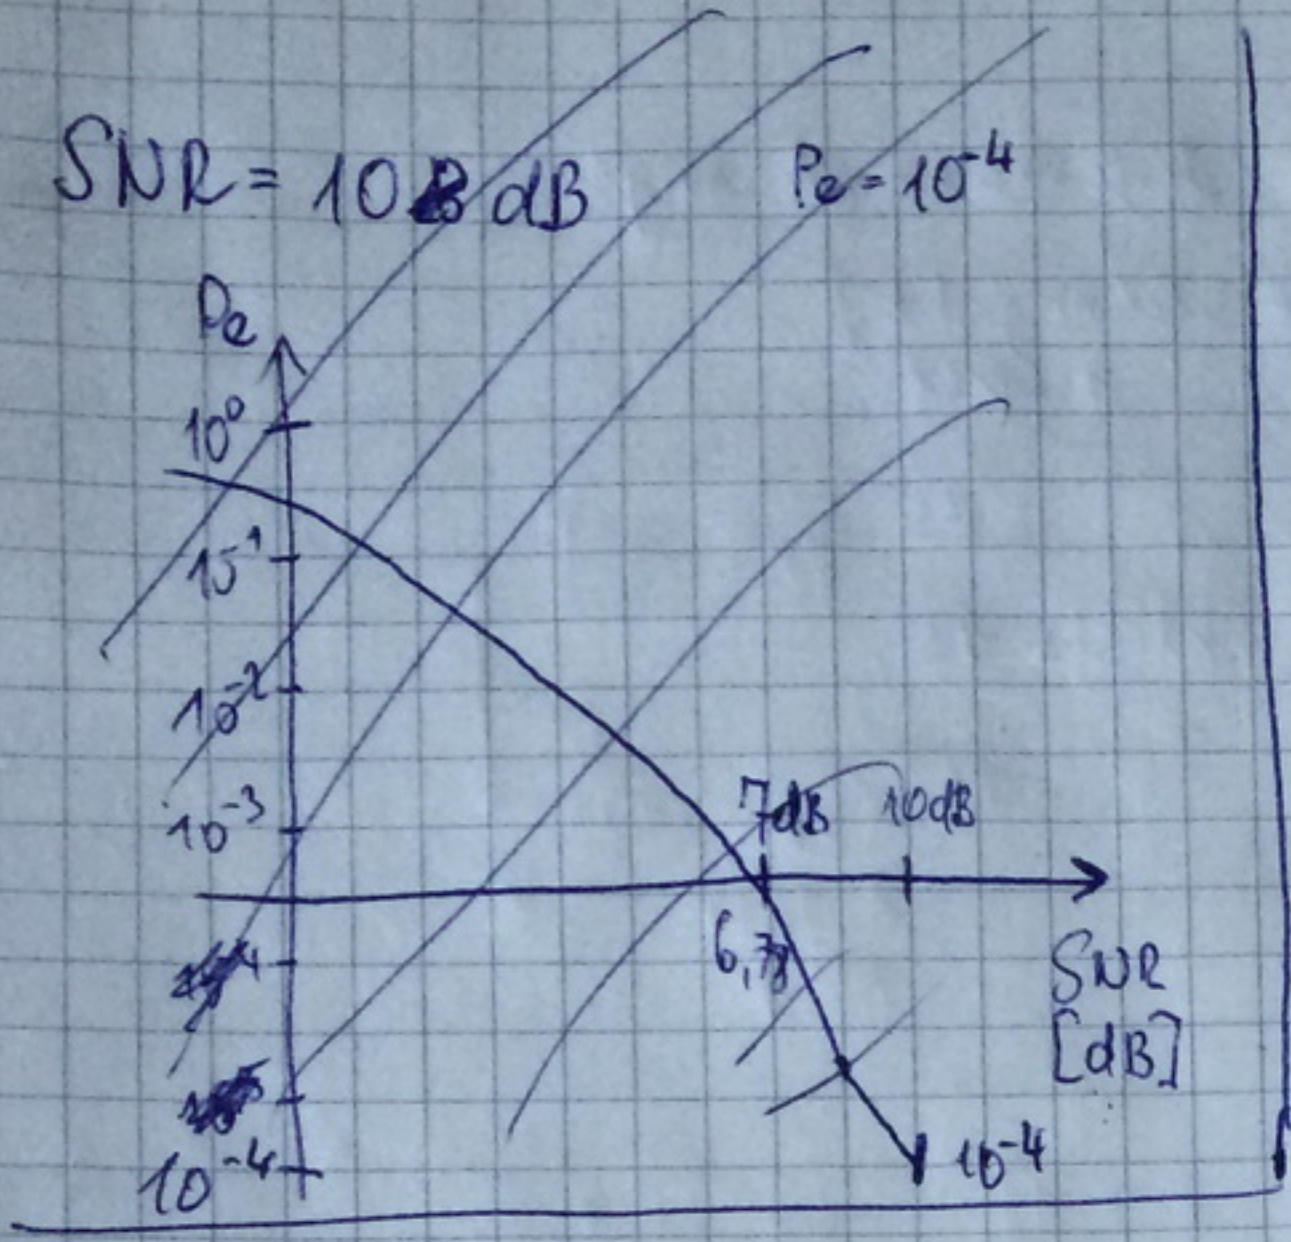 SNR = 10 dB
Pe = 10⁻⁴
Pe
10⁰
10⁻¹
10⁻²
10⁻³
7dB
10dB
SNR
[dB]
10⁻⁴
10⁻⁴